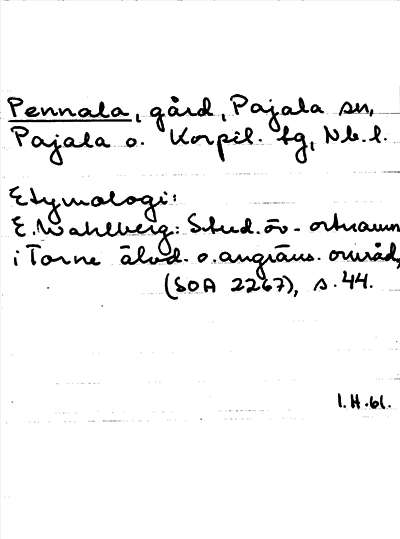 Pennala, gård, Pajala sn,
Pajala o. Korpil. tg, Nb.l.
Etymologi:
E. Wahlberg: Stud. öv. ortnamn
i Torne älvd. o. angräns. område,
(SOA 2267), s. 44.
I.H.61.